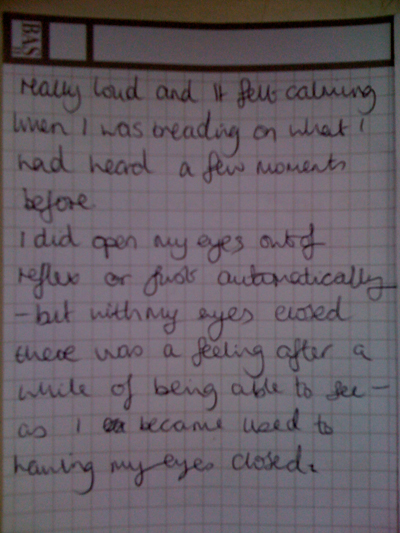 BAS
really loud and it felt calming
when I was treading on what I
had heard a few moments
before.
I did open my eyes out of
reflex or just automatically
- but with my eyes closed
there was a feeling after a
while of being able to see -
as I became used to
having my eyes closed.